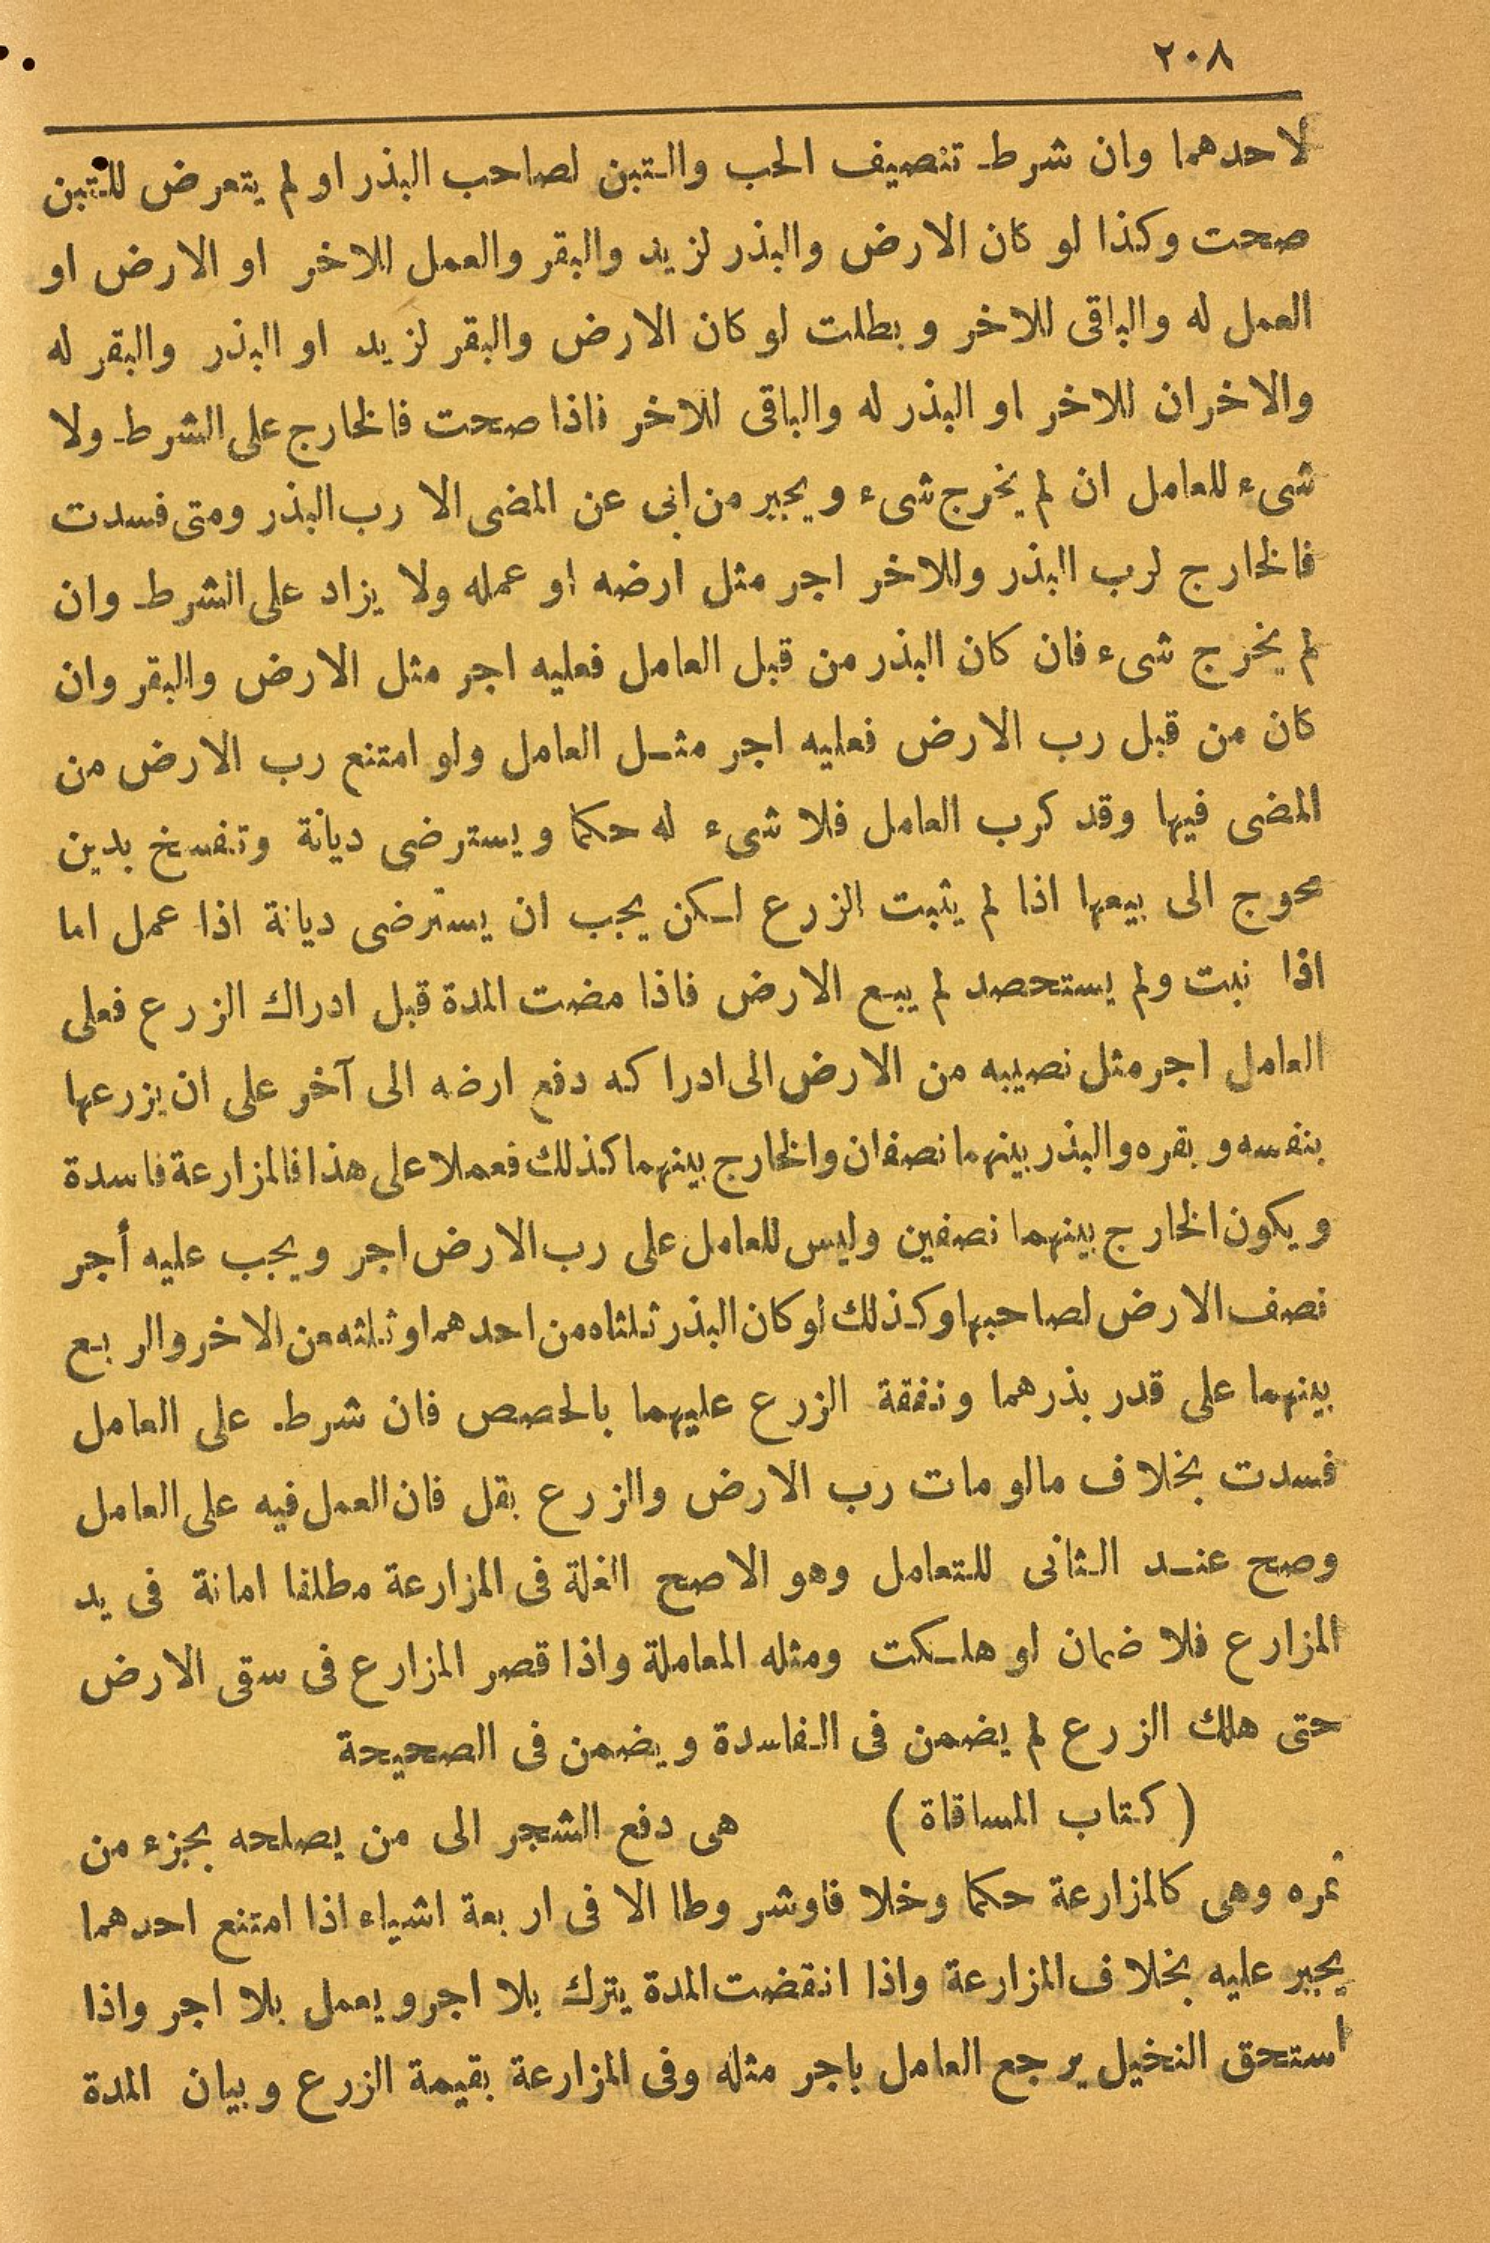 ٢٠٨
لاحدهما وان شرط تنصيف الحب والتبن لصاحب البذر او لم يتعرض للتبن
صحت وكذا لو كان الارض والبذر لزيد والبقر والعمل للاخر او الارض او
العمل له والباقى للاخر وبطلت لو كان الارض والبقر لزيد او البذر والبقر له
والاخران للاخر او البذر له والباقى للاخر فاذا صحت فالخارج على الشرط ولا
شىء للعامل ان لم يخرج شىء ويجبر من ابى عن المضى الا رب البذر ومتى فسدت
فالخارج لرب البذر وللاخر اجر مثل ارضه او عمله ولا يزاد على الشرط وان
لم يخرج شىء فان كان البذر من قبل العامل فعليه اجر مثل الارض والبقر وان
كان من قبل رب الارض فعليه اجر مثل العامل ولو امتنع رب الارض من
المضى فيها وقد كرب العامل فلا شىء له حكما ويسترضى ديانة وتفسخ بدين
محوج الى بيعها اذا لم يثبت الزرع لكن يجب ان يسترضى ديانة اذا عمل اما
اذا نبت ولم يستحصد لم يبع الارض فاذا مضت المدة قبل ادراك الزرع فعلى
العامل اجر مثل نصيبه من الارض الى ادراكه دفع ارضه الى آخر على ان يزرعها
بنفسه وبقره والبذر بينهما نصفان والخارج بينهما كذلك فعملا على هذا فالمزارعة فاسدة
ويكون الخارج بينهما نصفين وليس للعامل على رب الارض اجر ويجب عليه أجر
نصف الارض لصاحبها وكذلك لو كان البذر ثلثاه من احدهما وثلثه من الاخر والربع
بينهما على قدر بذرهما ونفقة الزرع عليهما بالحصص فان شرط على العامل
فسدت بخلاف مالو مات رب الارض والزرع بقل فان العمل فيه على العامل
وصح عند الثانى للتعامل وهو الاصح الغلة فى المزارعة مطلقا امانة فى يد
المزارع فلا ضمان لو هلكت ومثله المعاملة واذا قصر المزارع فى سقى الارض
حتى هلك الزرع لم يضمن فى الفاسدة ويضمن فى الصحيحة
(كتاب المساقاة) هى دفع الشجر الى من يصلحه بجزء من
ثمره وهى كالمزارعة حكما وخلا فاوشر وطا الا فى اربعة اشياء اذا امتنع احدهما
يجبر عليه بخلاف المزارعة واذا انقضت المدة يترك بلا اجر ويعمل بلا اجر واذا
استحق النخيل يرجع العامل باجر مثله وفى المزارعة بقيمة الزرع وبيان المدة